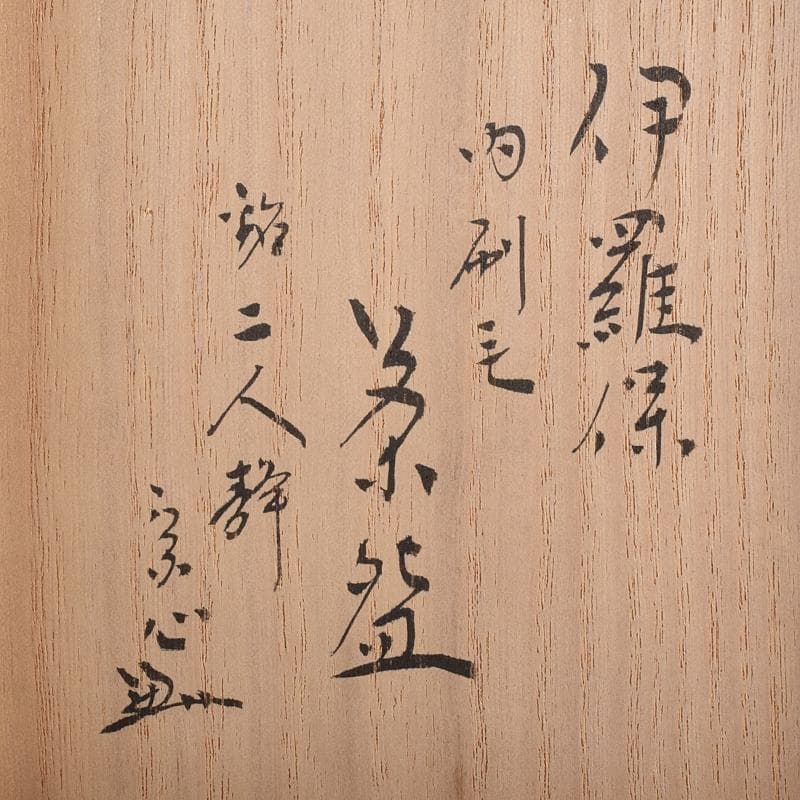 伊羅保
内刷毛
茶盌
銘二人静
宗心